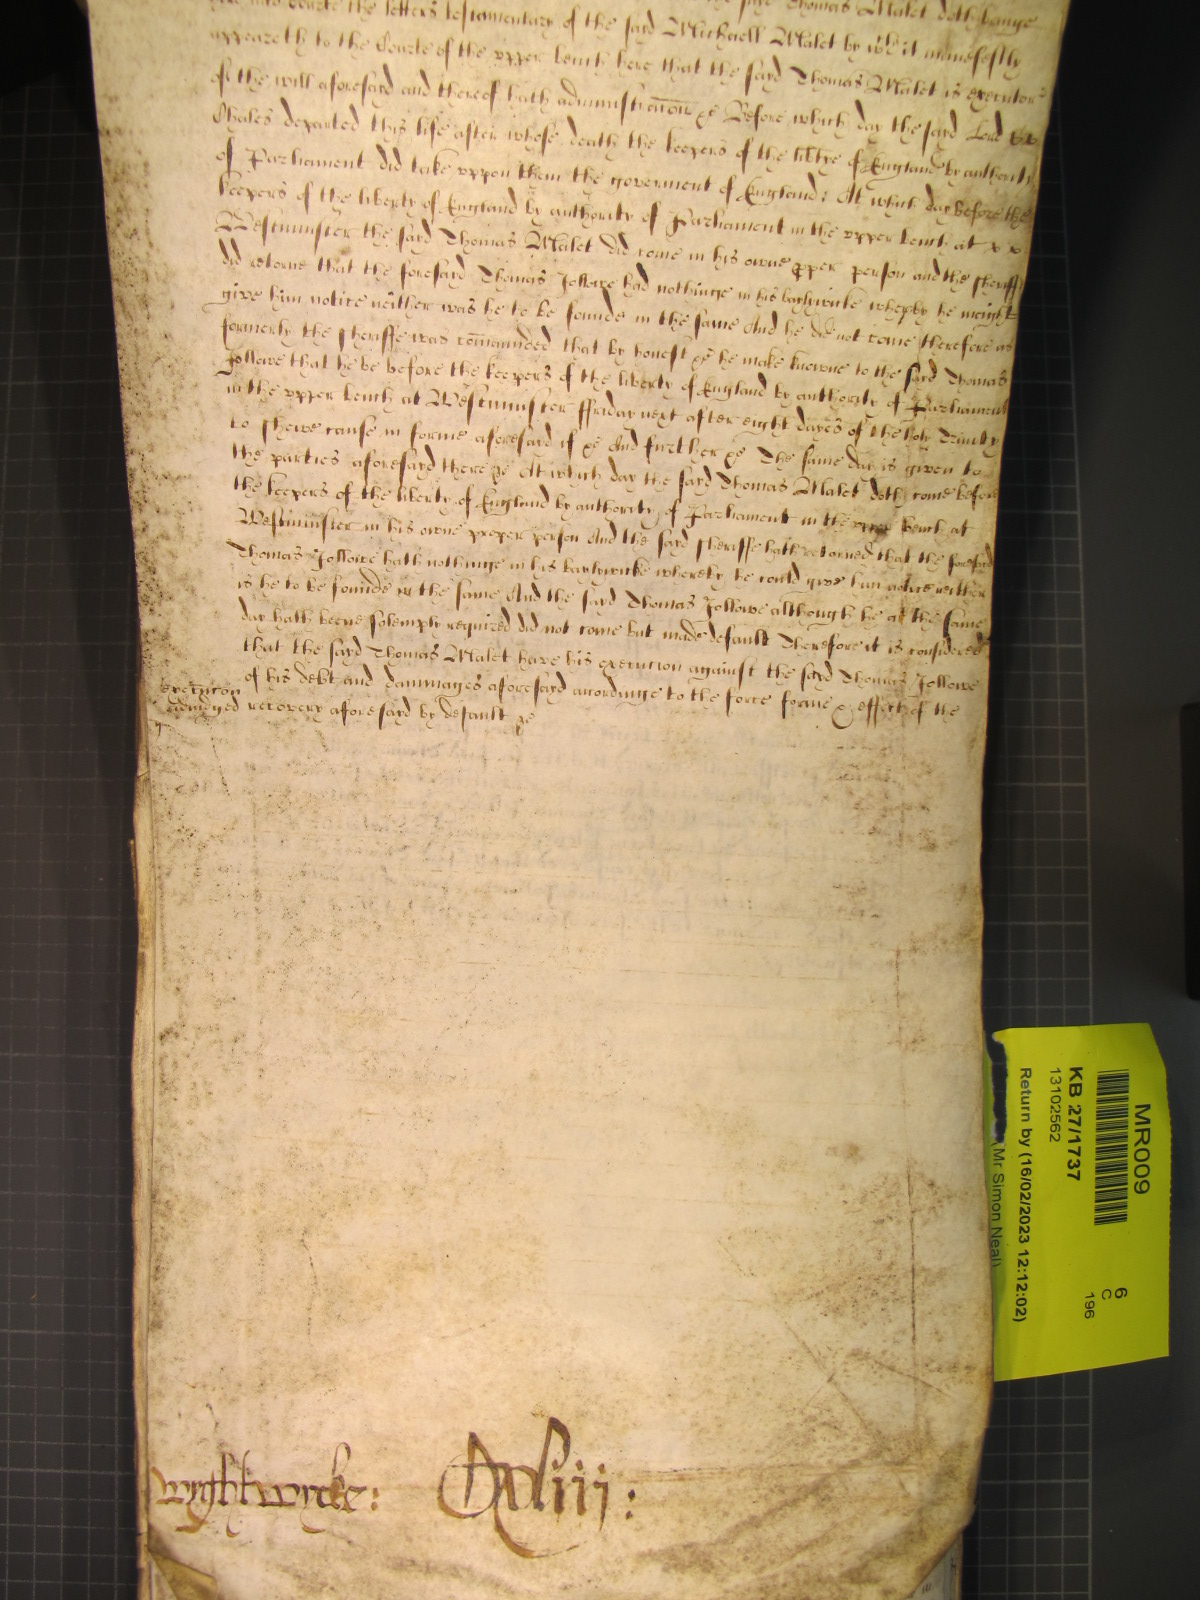 here into Courte the letters testamentary of the said Michaell Malet by wch it manifestly
appeareth to the Courte of the upper bench here that the said Thomas Malet is executor
of the will aforesaid and thereof hath administracion &c Before which day the said Lord
Chales departed this life after whose death the keepers of the libtye of England by authority
of Parliament did take uppon them the goverment of England: At which day before the
keepers of the liberty of England by authority of Parliament in the upper bench at
Westminster the said Thomas Malet did come in his owne pper person and the sheriffe
did retorne that the foresaid Thomas Jollowe had nothinge in his baylywicke whereby he might
give him notice neither was he to be founde in the same And he did not come therefore as
formerly the sheriffe was comaunded that by honest &c he make knowne to the said Thomas
Jollowe that he be before the keepers of the liberty of England by authority of Parliament
in the upper bench at Westminster ffriday next after eight dayes of the holy Trinity
to shewe cause in forme aforesaid if &c And further &c The same day is given to
the parties aforesaid there &c At which day the said Thomas Malet doth come before
the keepers of the liberty of England by authority of Parliament in the upper bench at
Westminster in his owne proper person And the said sheriffe hath retorned that the foresaid
Thomas Jollowe hath nothinge in his baylywicke whereby he could give him notice neither
is he to be founde in the same And the said Thomas Jollowe although he at the same
day hath beene solemply required did not come but made default Therefore it is considered
that the said Thomas Malet have his execucion against the said Thomas Jollowe
of his debt and dammages aforesaid accordinge to the force forme & effect of the
execucon
adiudged recovery aforesaid by default &c
wyghtwycke:
MR009
KB 27/1737
13102562
Return by (16/02/2023 12:12:02)
(Mr Simon Neal)
6
C
196